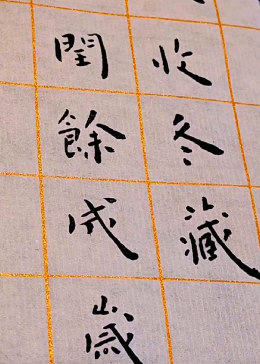 收冬藏
閏餘成歲